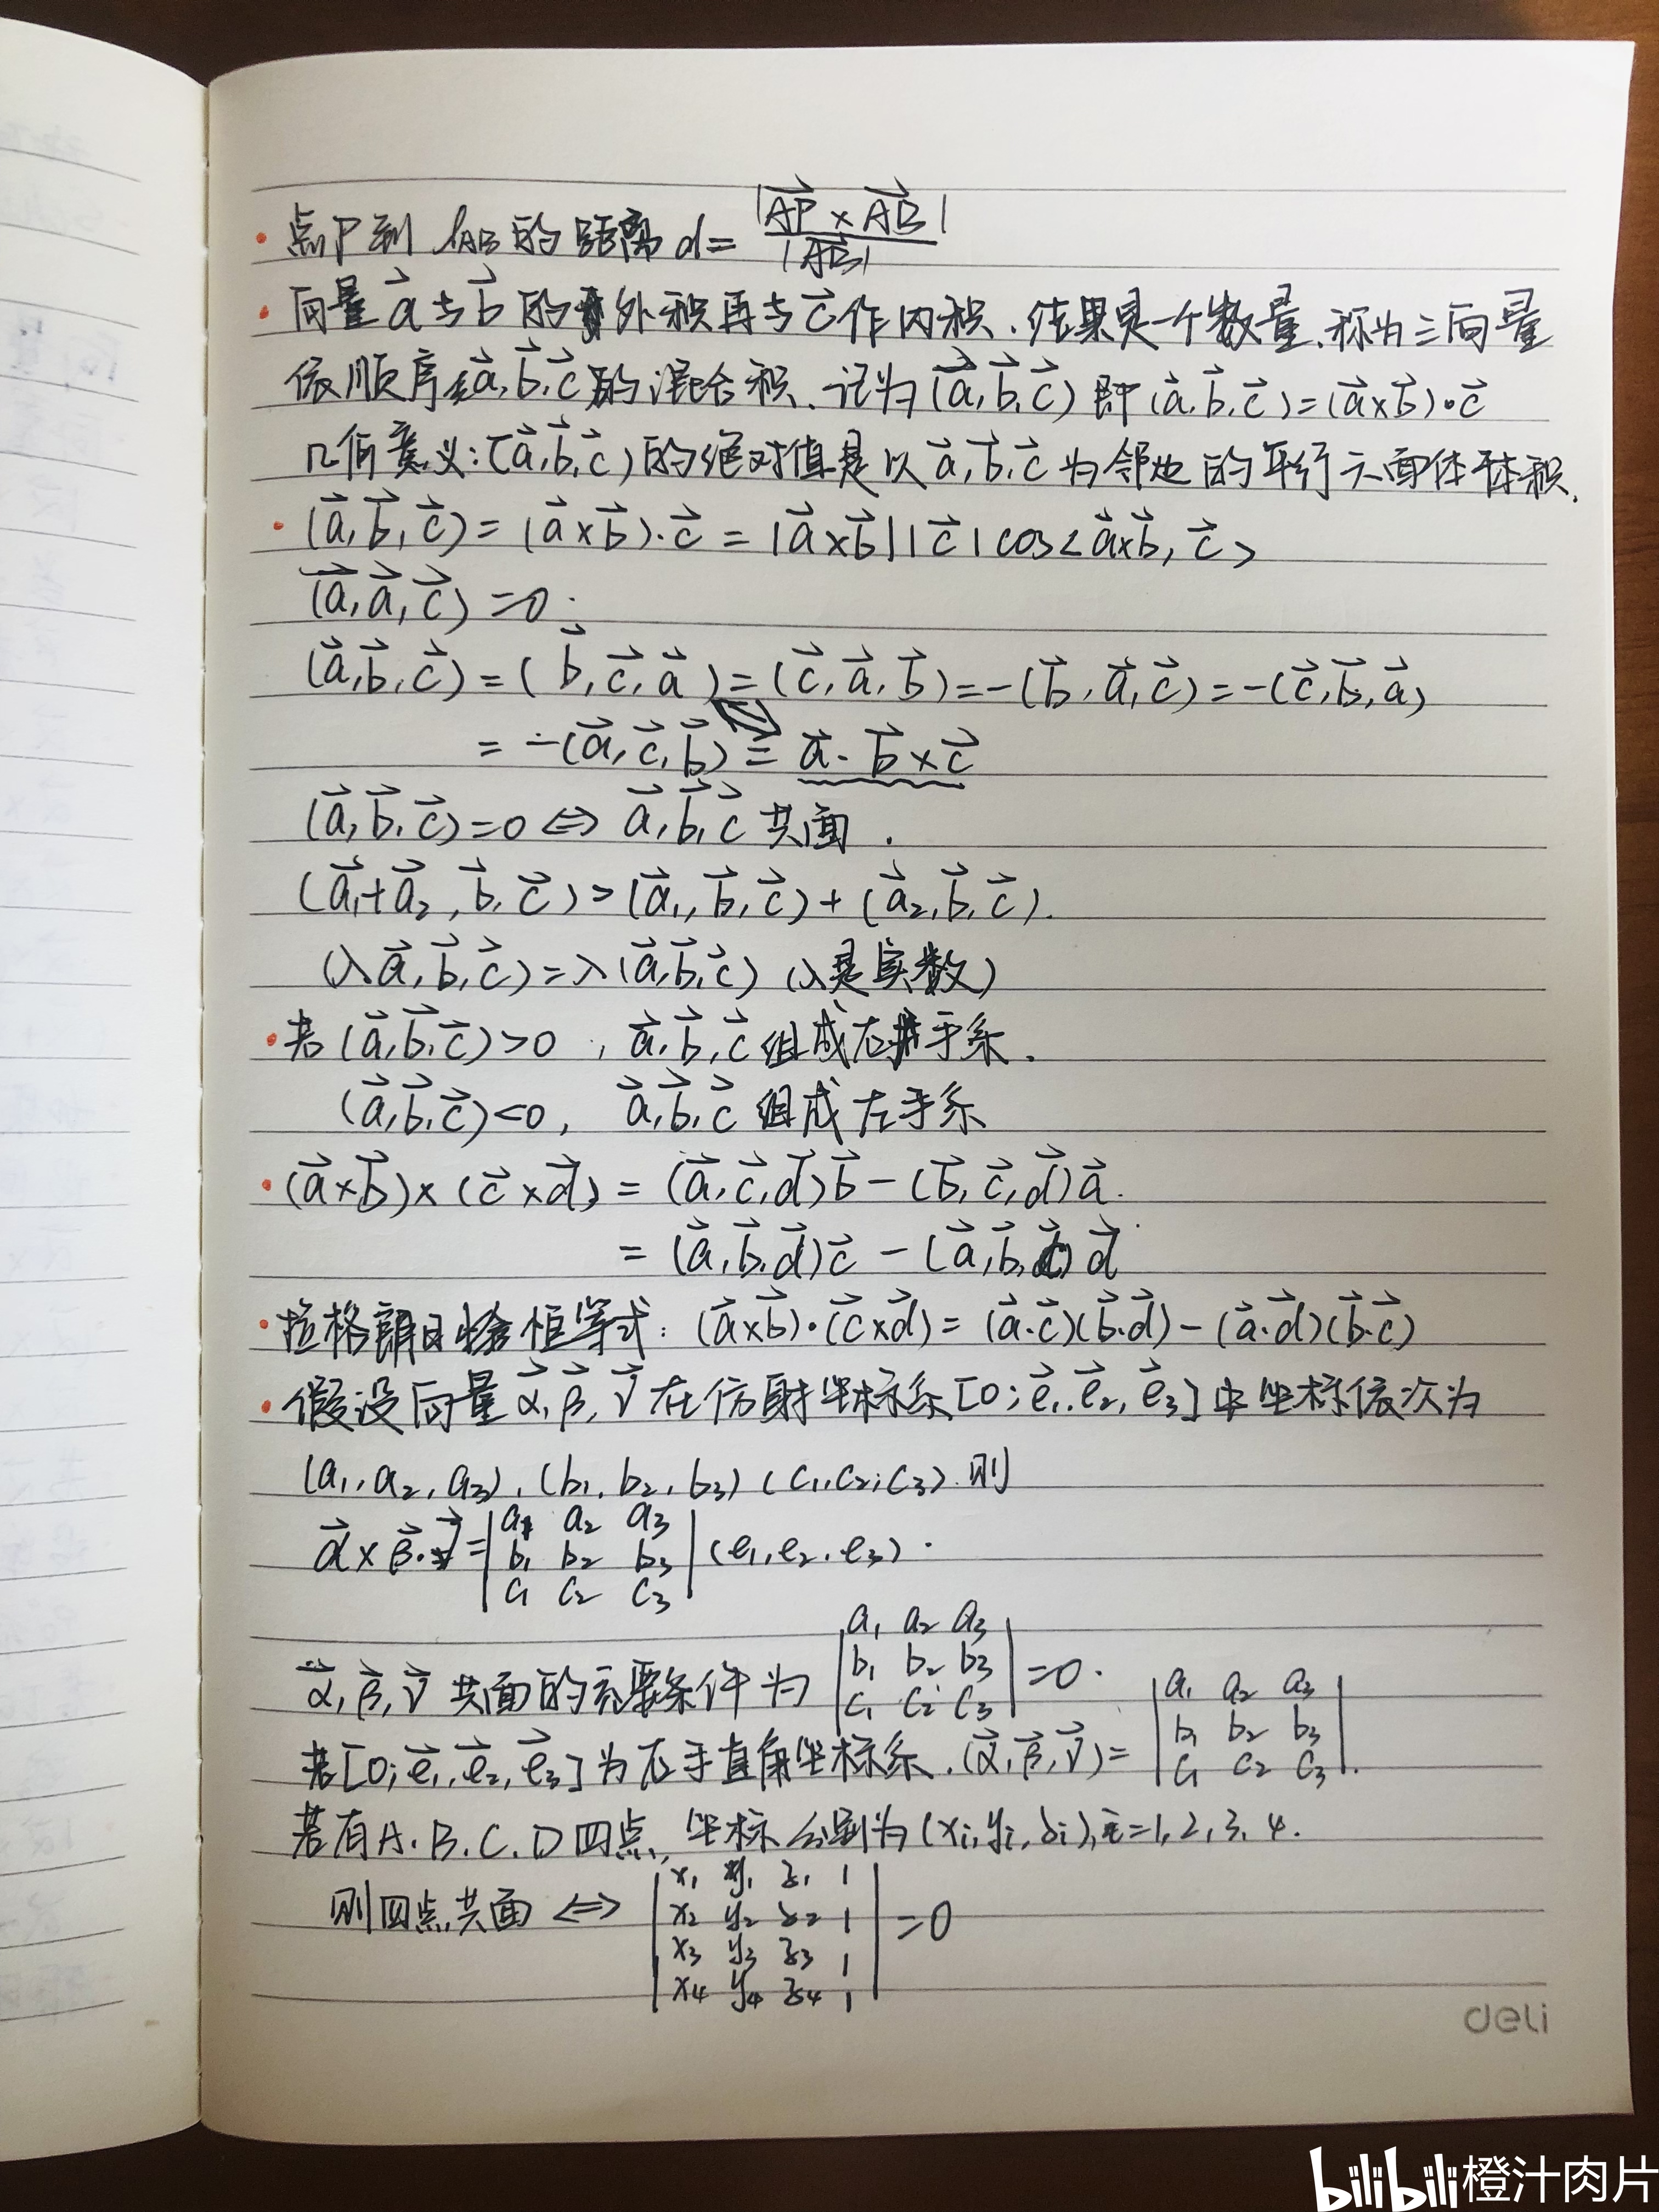 · 点P到 l_AB 的距离 d = |AP⃗ × AB⃗| / |AB⃗|
· 向量 a⃗ 与 b⃗ 的外积再与 c⃗ 作内积. 结果是一个数量, 称为三向量
依顺序 a⃗, b⃗, c⃗ 的混合积. 记为 (a⃗, b⃗, c⃗) 即 (a⃗, b⃗, c⃗) = (a⃗×b⃗)·c⃗
几何意义: (a⃗, b⃗, c⃗) 的绝对值是以 a⃗, b⃗, c⃗ 为邻边的平行六面体体积.
· (a⃗, b⃗, c⃗) = (a⃗×b⃗)·c⃗ = |a⃗×b⃗||c⃗|cos<a⃗×b⃗, c⃗>
(a⃗, a⃗, c⃗) = 0.
(a⃗, b⃗, c⃗) = (b⃗, c⃗, a⃗) = (c⃗, a⃗, b⃗) = -(b⃗, a⃗, c⃗) = -(c⃗, b⃗, a⃗)
= -(a⃗, c⃗, b⃗) = a⃗·b⃗×c⃗
(a⃗, b⃗, c⃗) = 0 ⇔ a⃗, b⃗, c⃗ 共面.
(a⃗₁+a⃗₂, b⃗, c⃗) = (a⃗₁, b⃗, c⃗) + (a⃗₂, b⃗, c⃗).
(λa⃗, b⃗, c⃗) = λ(a⃗, b⃗, c⃗) (λ是实数)
· 若 (a⃗, b⃗, c⃗) > 0, a⃗, b⃗, c⃗ 组成右手系.
(a⃗, b⃗, c⃗) < 0, a⃗, b⃗, c⃗ 组成左手系
· (a⃗×b⃗)×(c⃗×d⃗) = (a⃗, c⃗, d⃗)b⃗ - (b⃗, c⃗, d⃗)a⃗.
= (a⃗, b⃗, d⃗)c⃗ - (a⃗, b⃗, c⃗)d⃗
· 拉格朗日恒等式: (a⃗×b⃗)·(c⃗×d⃗) = (a⃗·c⃗)(b⃗·d⃗) - (a⃗·d⃗)(b⃗·c⃗)
· 假设向量 α⃗, β⃗, γ⃗ 在仿射坐标系 [O; e⃗₁, e⃗₂, e⃗₃] 中坐标依次为
(a₁, a₂, a₃), (b₁, b₂, b₃) (c₁, c₂, c₃). 则
α⃗×β⃗·γ⃗ = |a₁ a₂ a₃; b₁ b₂ b₃; c₁ c₂ c₃| (e₁, e₂, e₃).
α⃗, β⃗, γ⃗ 共面的充要条件为 |a₁ a₂ a₃; b₁ b₂ b₃; c₁ c₂ c₃| = 0.
若 [O; e⃗₁, e⃗₂, e⃗₃] 为右手直角坐标系. (α⃗, β⃗, γ⃗) = |a₁ a₂ a₃; b₁ b₂ b₃; c₁ c₂ c₃|.
若有 A. B. C. D 四点, 坐标分别为 (xᵢ, yᵢ, zᵢ), i = 1, 2, 3, 4.
则四点共面 ⇔ |x₁ y₁ z₁ 1; x₂ y₂ z₂ 1; x₃ y₃ z₃ 1; x₄ y₄ z₄ 1| = 0
deli
bilibili 橙汁肉片